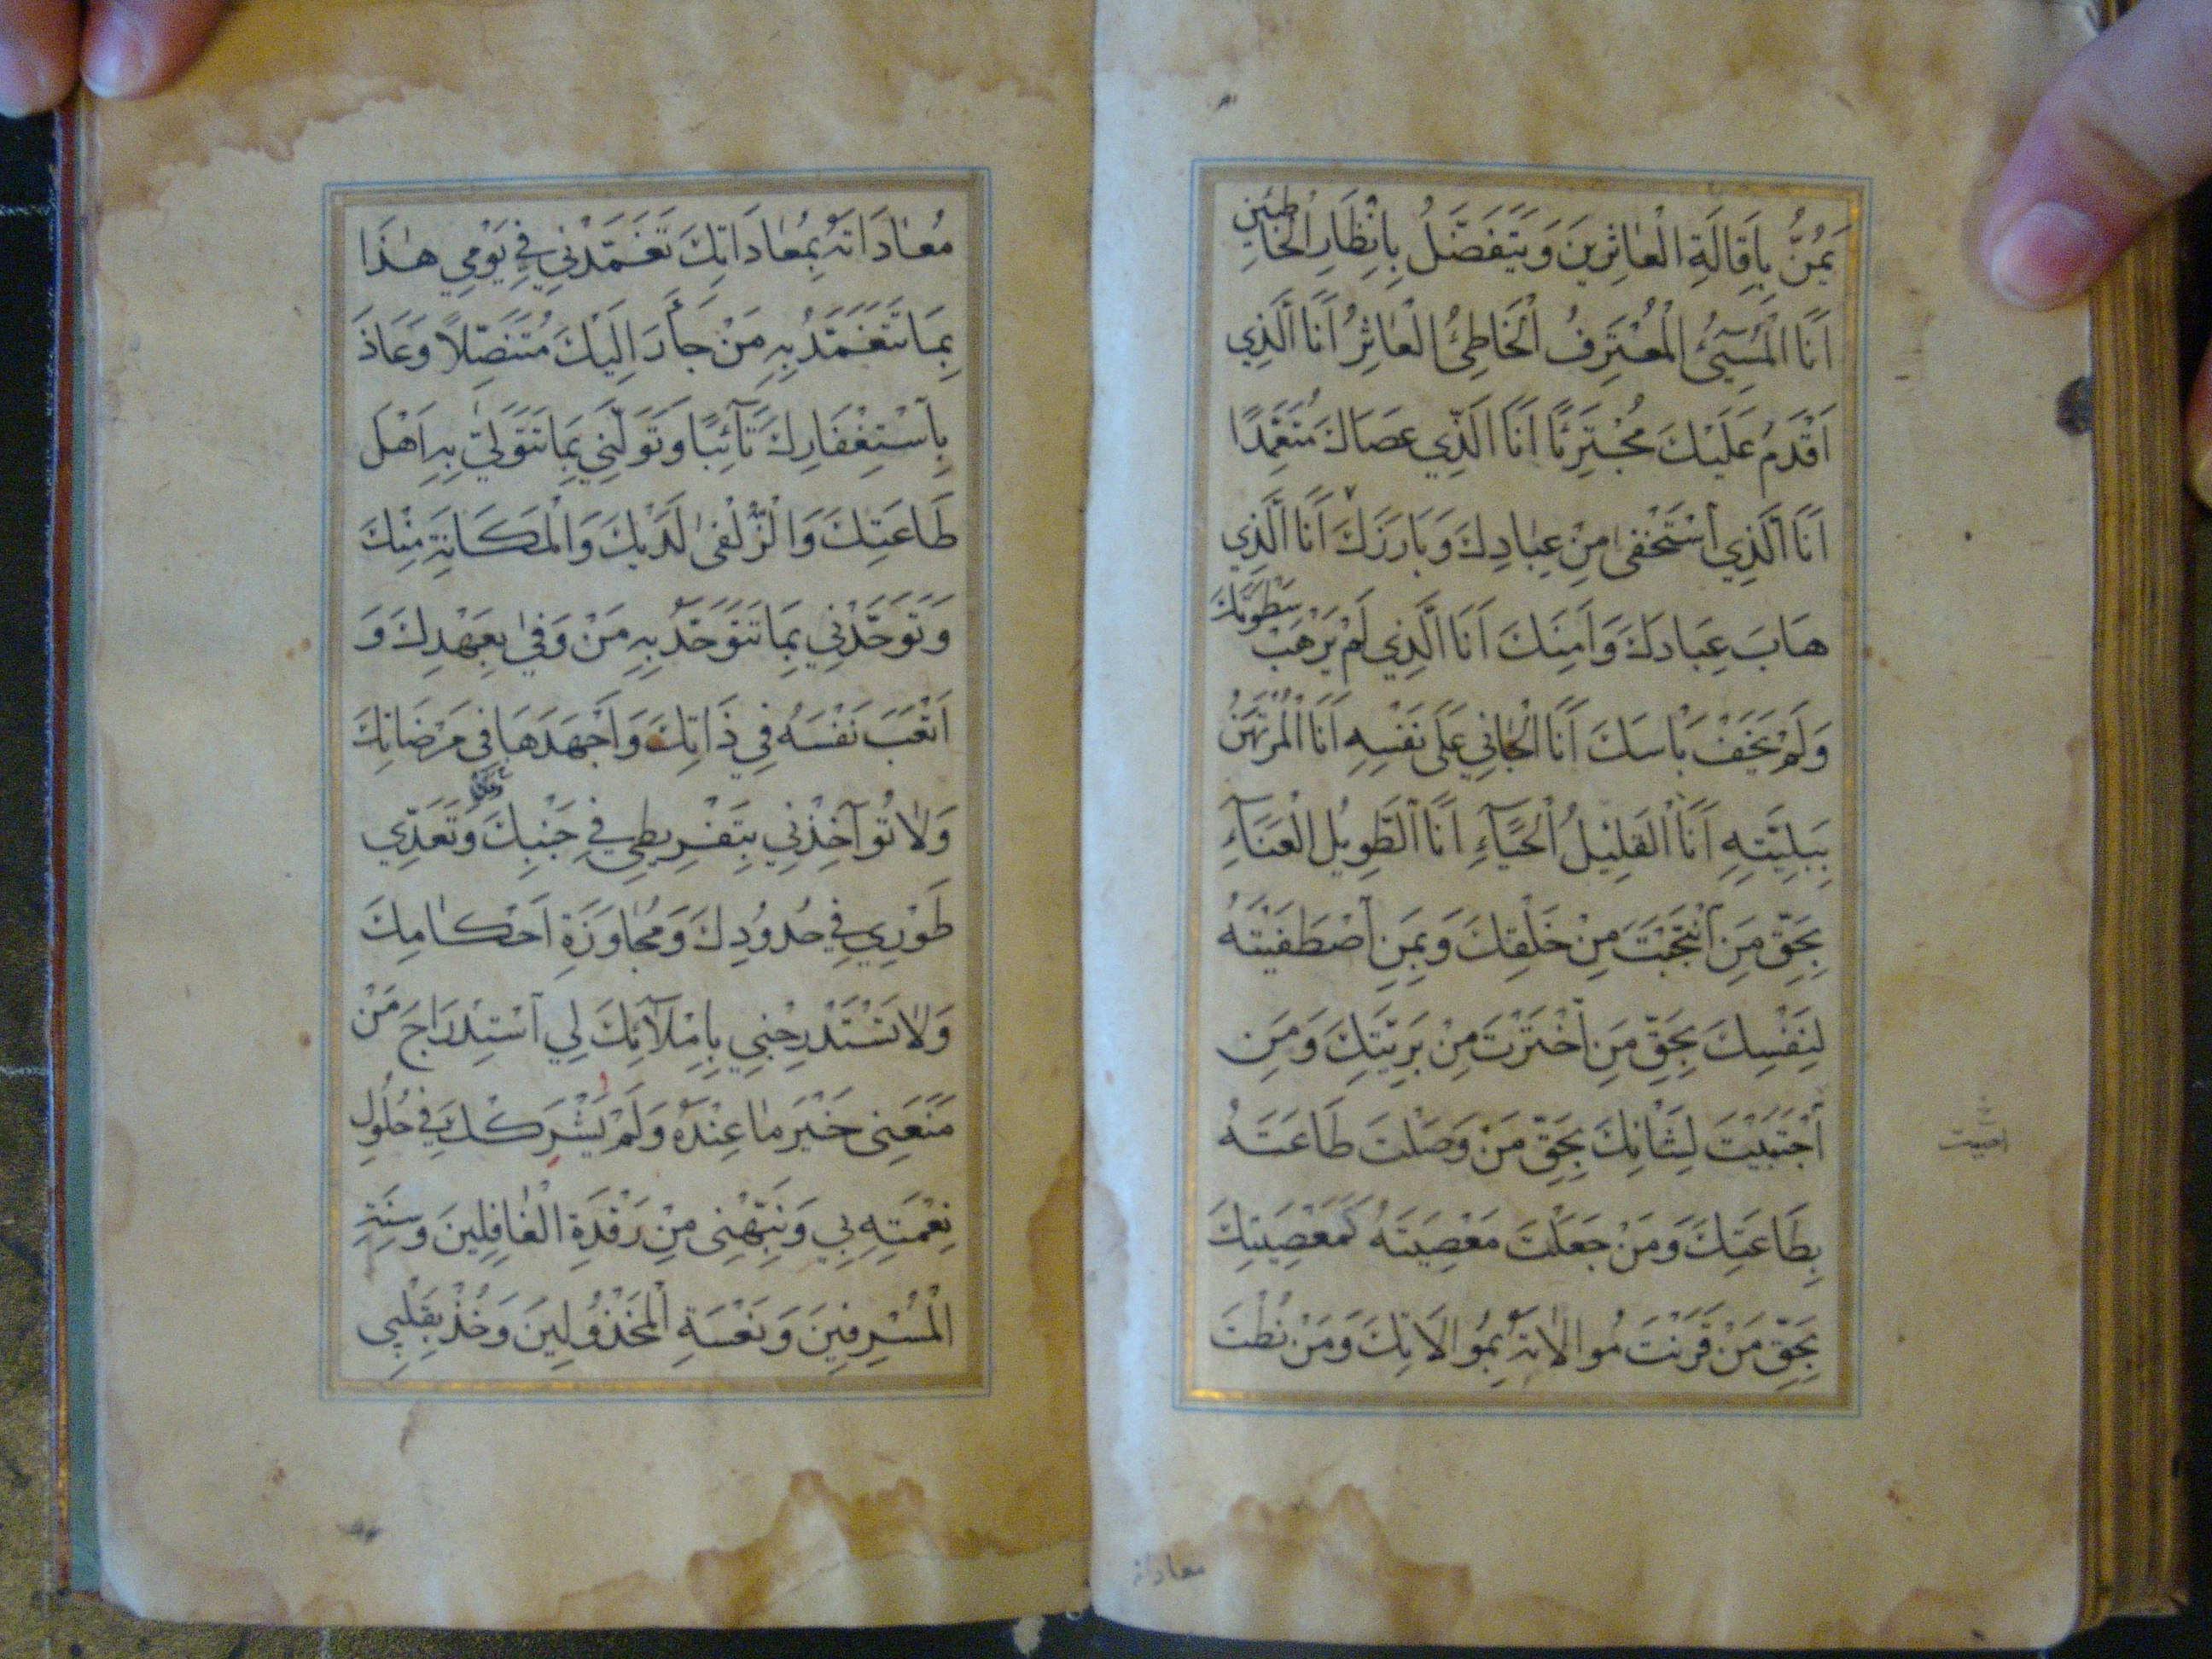 يَمُنُّ بِاِقَالَةِ الْعٰاثِرِينَ وَيَتَفَضَّلُ بِاِنْظَارِ الْخَاطِئِينَ
اَنَا الْمُسِيۤئُ الْمُعْتَرِفُ الْخَاطِئُ الْعٰاثِرُ اَنَا الَّذِي
اَقْدَمَ عَلَيْكَ مُجْتَرِئًا اَنَا الَّذِي عَصَاكَ مُتَعَمِّدًا
اَنَا الَّذِي اسْتَخْفىٰ مِنْ عِبٰادِكَ وَبَارَزَكَ اَنَا الَّذِي
هٰابَ عِبَادَكَ وَاَمِنَكَ اَنَا الَّذِي لَمْ يَرْهَبْ سَطْوَتَكَ
وَلَمْ يَخَفْ بَاْسَكَ اَنَا الْجٰانِي عَلىٰ نَفْسِهِ اَنَا الْمُرْتَهَنُ
بِبَلِيَّتِهِ اَنَا الْقَلِيلُ الْحَيَاۤءِ اَنَا الطَّوِيلُ الْعَنَاۤءِ
بِحَقِّ مَنِ انْتَجَبْتَ مِنْ خَلْقِكَ وَبِمَنِ اصْطَفَيْتَهُ
لِنَفْسِكَ بِحَقِّ مَنِ اخْتَرْتَ مِنْ بَرِيَّتِكَ وَمَنِ
اجْتَبَيْتَ لِشَانِكَ بِحَقِّ مَنْ وَصَلْتَ طَاعَتَهُ
بِطَاعَتِكَ وَمَنْ جَعَلْتَ مَعْصِيَتَهُ كَمَعْصِيَتِكَ
بِحَقِّ مَنْ قَرَنْتَ مُوالاٰتَهُ بِمُوالاَتِكَ وَمَنْ نُطْتَ
معاداته
مُعٰادَاتَهُ بِمُعٰادَاتِكَ تَغَمَّدْنِي فِي يَوْمِي هٰذَا
بِمٰا تَتَغَمَّدُ بِهِ مَنْ جَأَرَ اِلَيْكَ مُتَنَصِّلاً وَعَاذَ
بِاسْتِغْفَارِكَ تَاۤئِبًا وَتَوَلَّنِي بِمٰا تَتَوَلّىٰ بِهِ اَهْلَ
طَاعَتِكَ وَالزُّلْفىٰ لَدَيْكَ وَالْمَكَانَةِ مِنْكَ
وَتَوَحَّدْنِي بِمٰا تَتَوَحَّدُ بِهِ مَنْ وَفىٰ بِعَهْدِكَ وَ
اَتْعَبَ نَفْسَهُ فِي ذَاتِكَ وَاَجْهَدَهَا فِي مَرْضَاتِكَ
وَلاٰ تُوآخِذْنِي بِتَفْرِيطِي فِي جَنْبِكَ وَتَعَدِّي
طَوْرِي فِي حُدُودِكَ وَمُجٰاوَزَةِ اَحْكٰامِكَ
وَلاٰ تَسْتَدْرِجْنِي بِاِمْلاَۤئِكَ لِي اسْتِدْرَاجَ مَنْ
مَنَعَنِي خَيْرَ مٰا عِنْدَهُ وَلَمْ يَشْرَكْكَ فِي حُلُولِ
نِعْمَتِهِ بِي وَنَبِّهْنِي مِنْ رَقْدَةِ الْغٰافِلِينَ وَسِنَةِ
الْمُسْرِفِينَ وَنَعْسَةِ الْمَخْذُولِينَ وَخُذْ بِقَلْبِي